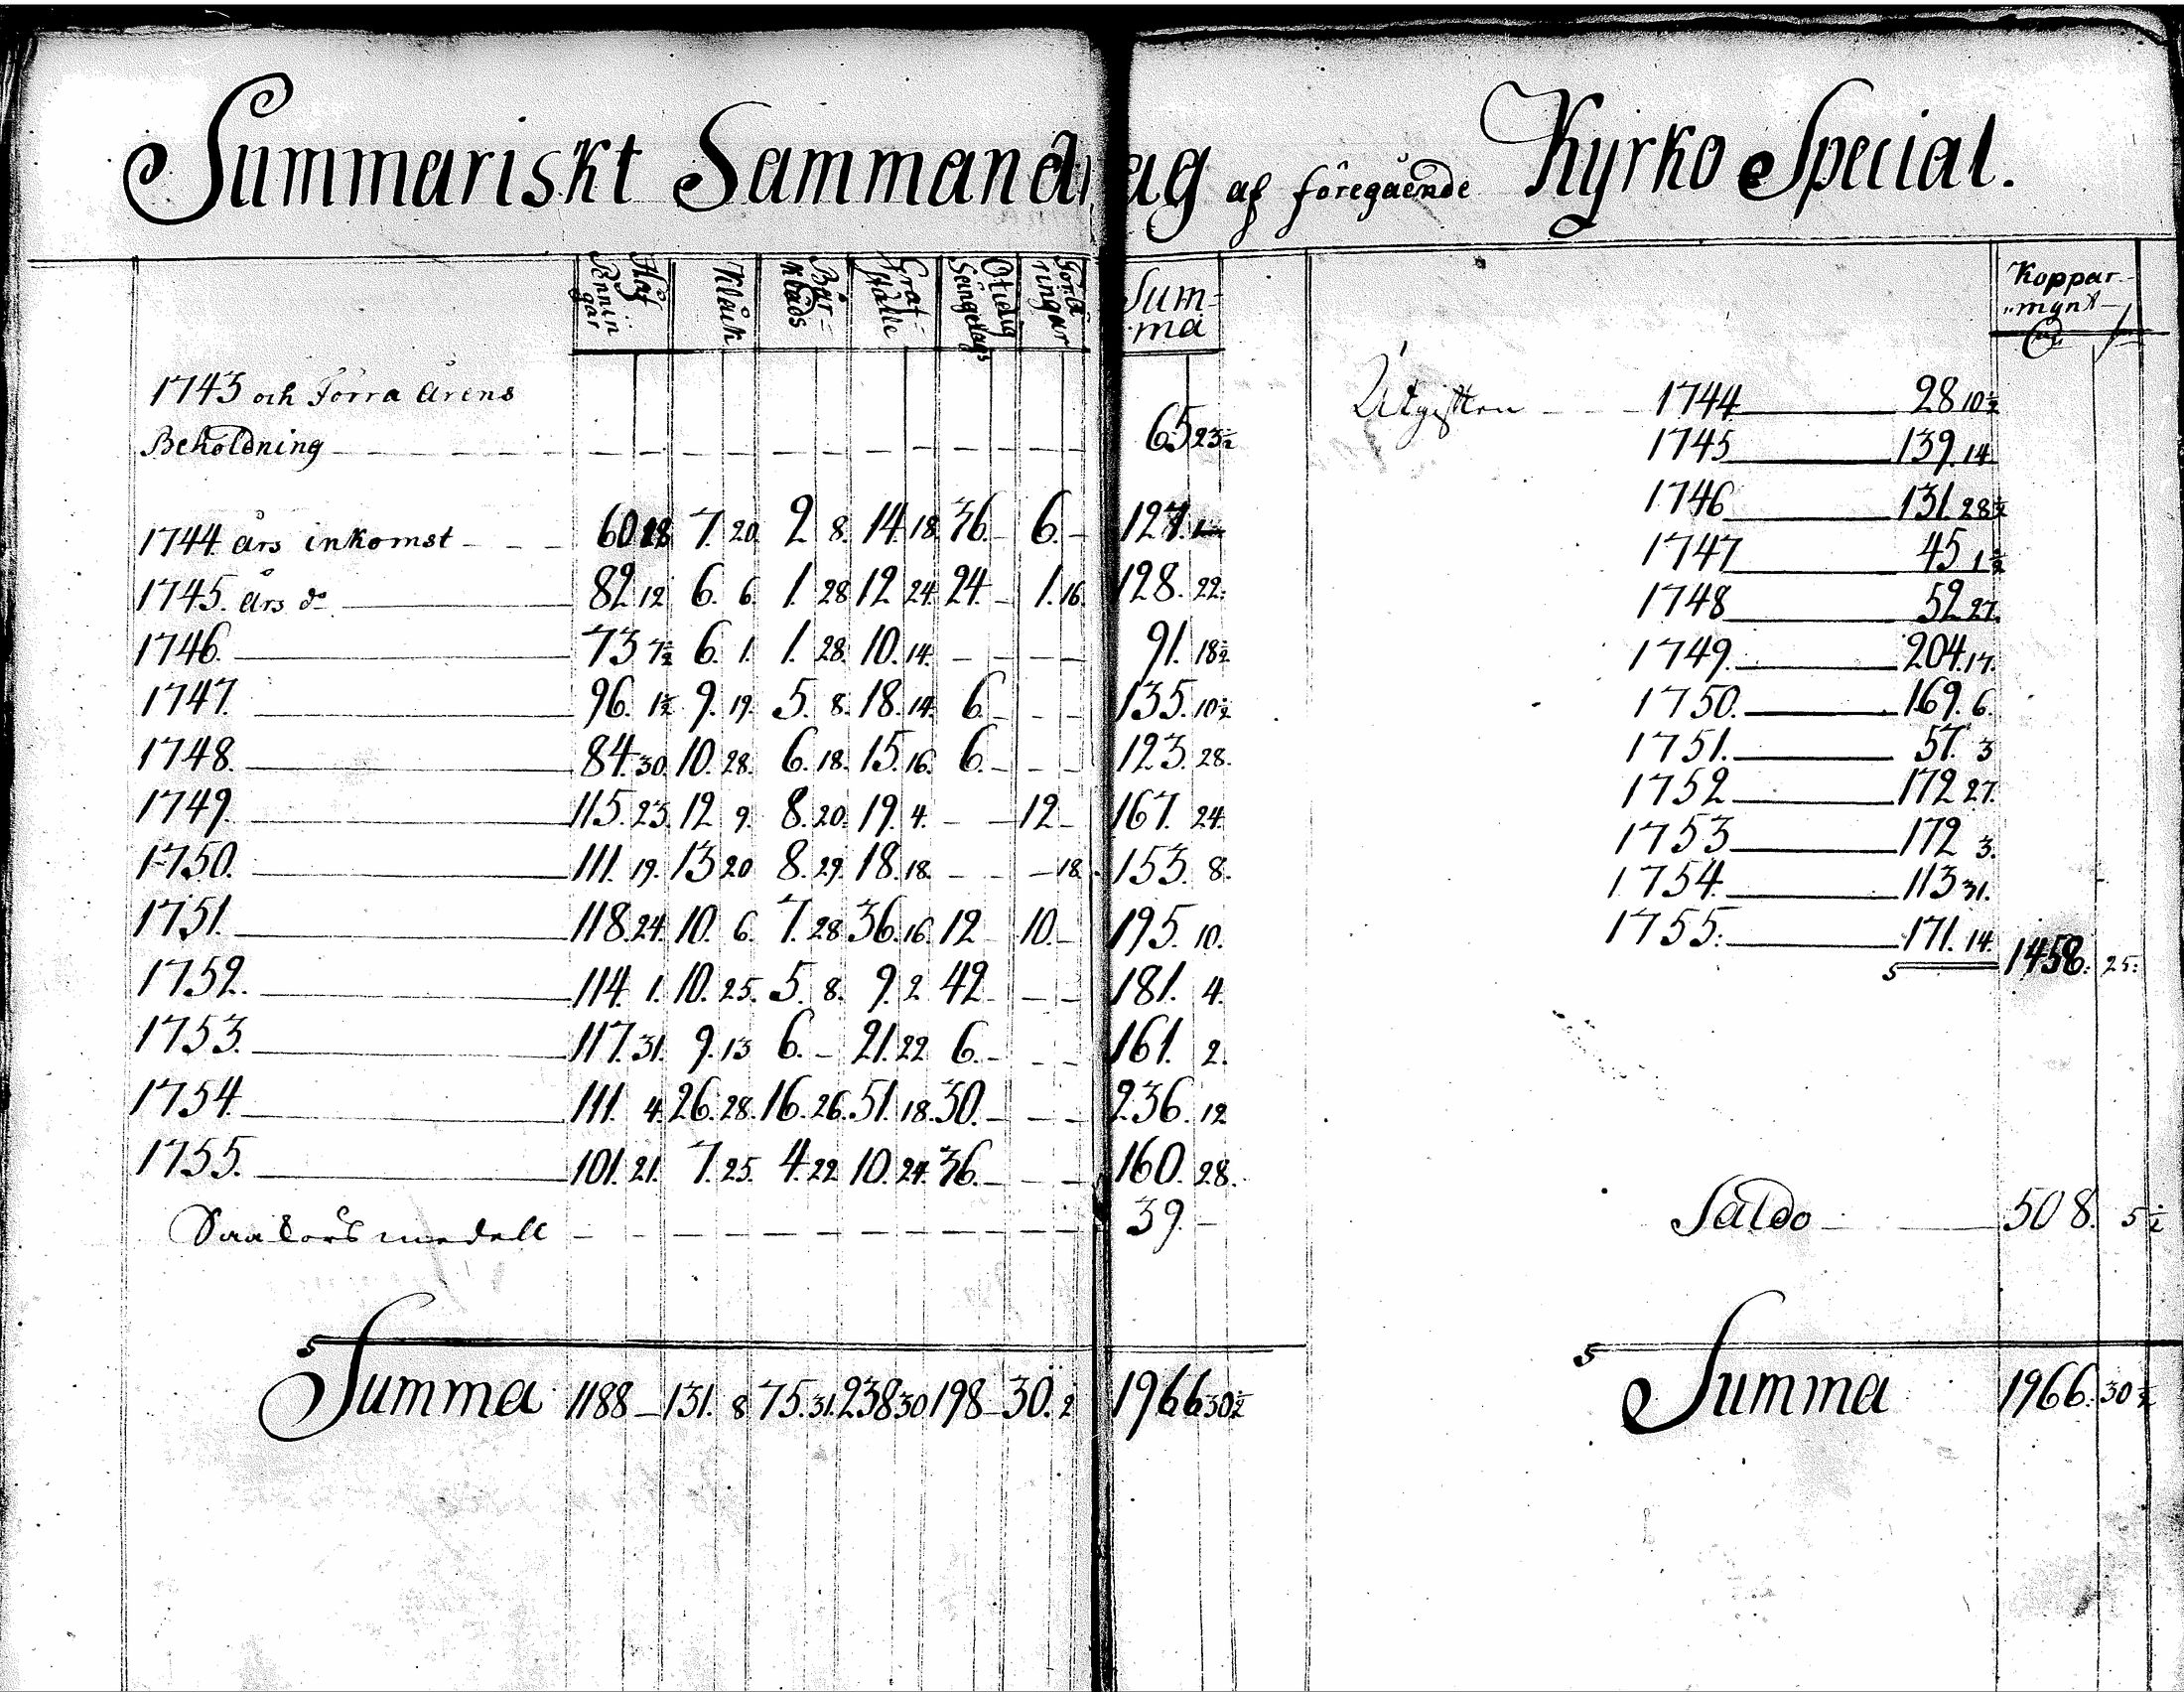 Summariskt Sammandrag af föregående Kyrko Special.
Håf Pennin gar Klåck Bår= Klads Graf= ställe Otidig Sängelags Förä ringar Sum= ma
1743 och Förra årens
Beholdning – – – 65 23½
1744 års inkomst – – – 60 28 7. 20. 2 8. 14. 18. 36. – 6. – 127.
1745. års do 82 12 6. 6. 1. 28 12 24. 24. – 1. 16. 128. 22.
1746. 73 7½ 6. 1. 1. 28. 10. 14. – – – – 91. 18½
1747. 96. 1½ 9. 19. 5. 8. 18. 14. 6. – – – 135. 10½
1748. 84. 30. 10. 28. 6. 18. 15. 16. 6. – – – 123. 28.
1749. 115. 23. 12 9. 8. 20. 19. 4. – – 12 – 167. 24.
1750. 111. 19. 13 20 8. 29. 18. 18. – – – 18. 153. 8.
1751. 118. 24. 10. 6. 7. 28 36. 16. 12 – 10. – 195. 10.
1752. 114. 1. 10. 25. 5. 8. 9. 2 42 – – – 181. 4.
1753. 117. 31. 9. 13 6. – 21. 22 6. – – – 161. 2.
1754. 111. 4. 26. 28. 16. 26. 51. 18. 30. – – – 236. 12
1755. 101. 21. 7. 25. 4. 22 10. 24. 36. – – – 160. 28.
Saakörs medell – – – 39. –
Summa 1188 – 131. 8 75. 31. 238 30 198 – 30. 2 1966 30½
Koppar-
mynt
Utgiften – – 1744 28 10½
1745 139. 14
1746 131. 28½
1747 45 1½
1748 52 27.
1749. 204. 17.
1750. 169. 6.
1751. 57. 3
1752 172 27.
1753 172 3.
1754. 113 31.
1755. 171. 14. 1458. 25.
Saldo 508. 5½
Summa 1966. 30½